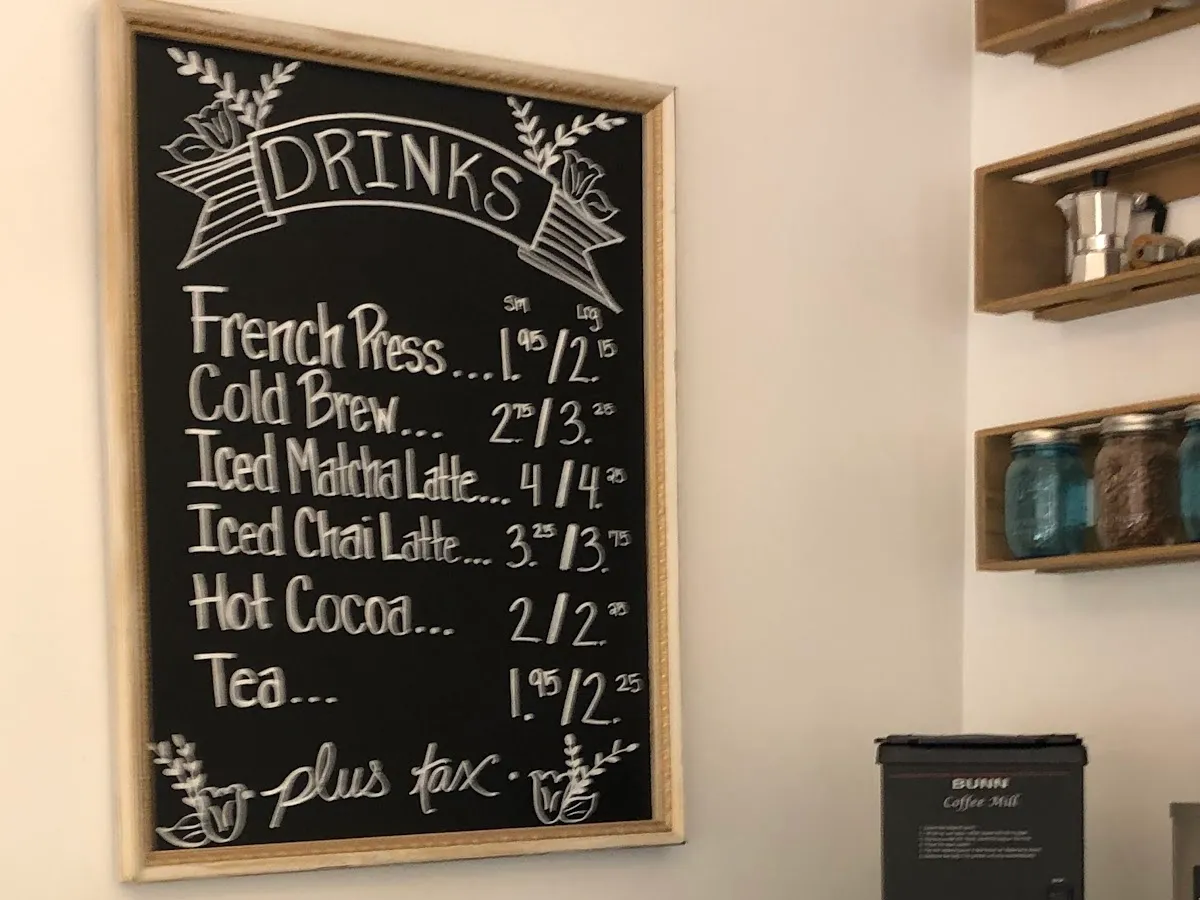 DRINKS
Sm Lrg
French Press... 1.95/2.15
Cold Brew... 2.75/3.25
Iced Matcha Latte... 4/4.25
Iced Chai Latte... 3.25/3.75
Hot Cocoa... 2/2.25
Tea... 1.95/2.25
plus tax.
BUNN
Coffee Mill